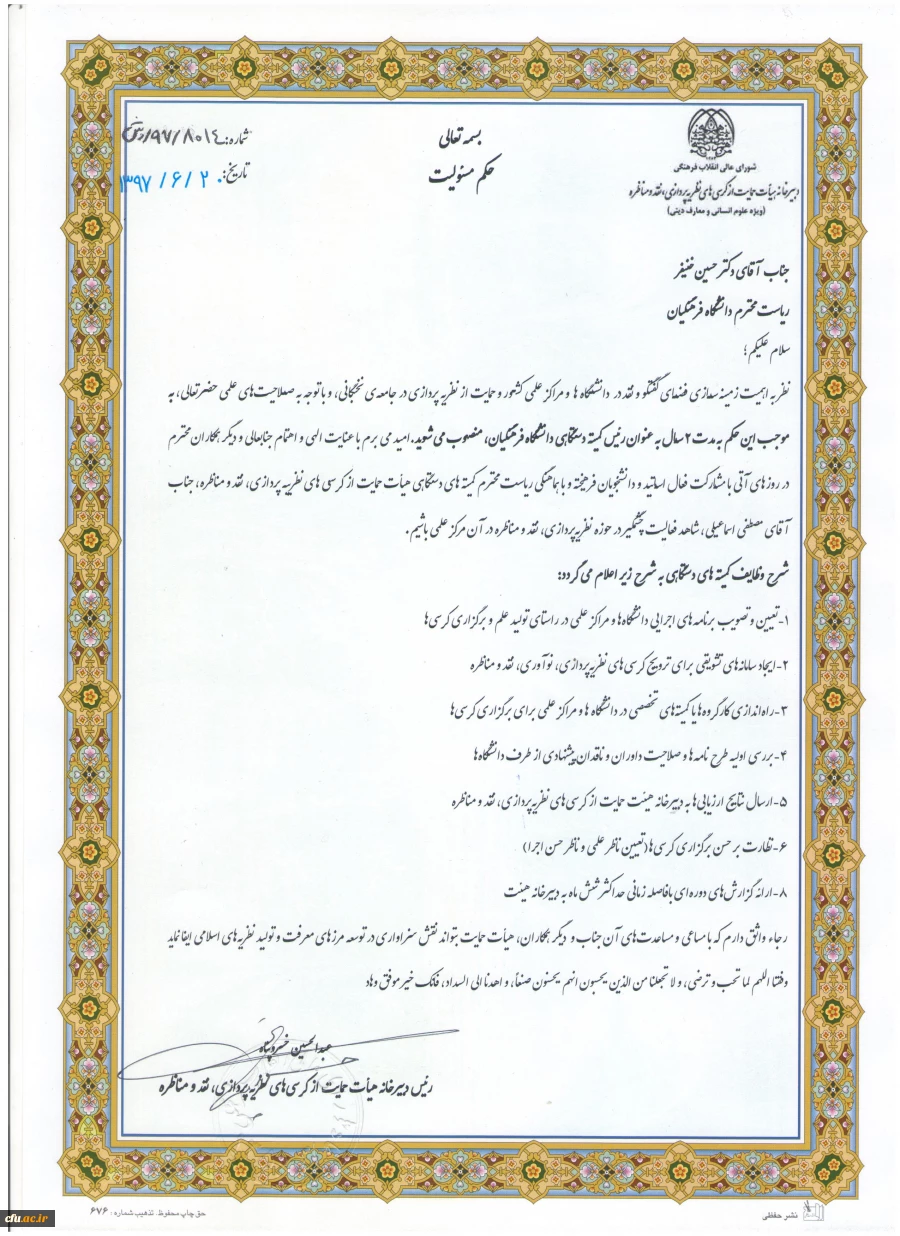 شورای عالی انقلاب فرهنگی
دبیرخانه هیأت حمایت از کرسی های نظریه پردازی، نقد و مناظره
(ویژه علوم انسانی و معارف دینی)
بسمه تعالی
حکم مسئولیت
شماره: ۹۷/۸۰۱۴/
تاریخ: ۱۳۹۷/۶/۲۰
جناب آقای دکتر حسین خنیفر
ریاست محترم دانشگاه فرهنگیان
سلام علیکم؛
نظر به اهمیت زمینه سازی فضای گفتگو و نقد در دانشگاه ها و مراکز علمی کشور و حمایت از نظریه پردازی در جامعه ی نخبگانی، و با توجه به صلاحیت های علمی حضرتعالی، به
موجب این حکم به مدت ۲ سال به عنوان رئیس کمیته دستگاهی دانشگاه فرهنگیان، منصوب می شوید. امید می برم با عنایت الهی و اهتمام جنابعالی و دیگر همکاران محترم
در روزهای آتی با مشارکت فعال اساتید و دانشجویان فرهیخته و با هماهنگی ریاست محترم کمیته های دستگاهی هیأت حمایت از کرسی های نظریه پردازی، نقد و مناظره، جناب
آقای مصطفی اسماعیلی، شاهد فعالیت چشمگیر در حوزه نظریه پردازی، نقد و مناظره در آن مرکز علمی باشیم.
شرح وظایف کمیته های دستگاهی به شرح زیر اعلام می گردد:
۱- تعیین و تصویب برنامه های اجرایی دانشگاه ها و مراکز علمی در راستای تولید علم و برگزاری کرسی ها
۲- ایجاد سامانه های تشویقی برای ترویج کرسی های نظریه پردازی، نوآوری، نقد و مناظره
۳- راه اندازی کارگروه ها یا کمیته های تخصصی در دانشگاه ها و مراکز علمی برای برگزاری کرسی ها
۴- بررسی اولیه طرح نامه ها و صلاحیت داوران و ناقدان پیشنهادی از طرف دانشگاه ها
۵- ارسال نتایج ارزیابی ها به دبیرخانه هیئت حمایت از کرسی های نظریه پردازی، نقد و مناظره
۶- نظارت بر حسن برگزاری کرسی ها (تعیین ناظر علمی و ناظر حسن اجرا)
۸- ارائه گزارش های دوره ای با فاصله زمانی حداکثر شش ماه به دبیرخانه هیئت
رجاء واثق دارم که با مساعی و مساعدت های آن جناب و دیگر همکاران، هیأت حمایت بتواند نقش سزاواری در توسعه مرزهای معرفت و تولید نظریه های اسلامی ایفا نماید
وفقنا اللهم لما تحب و ترضی، و لا تجعلنا من الذین یحسبون انهم یحسنون صنعاً، و اهدنا الی السداد، فانک خیر موفق و هاد
عبدالحسین خسروپناه
رئیس دبیرخانه هیأت حمایت از کرسی های نظریه پردازی، نقد و مناظره
نشر حفظی
حق چاپ محفوظ. تذهیب شماره: ۶۷۶
cfu.ac.ir